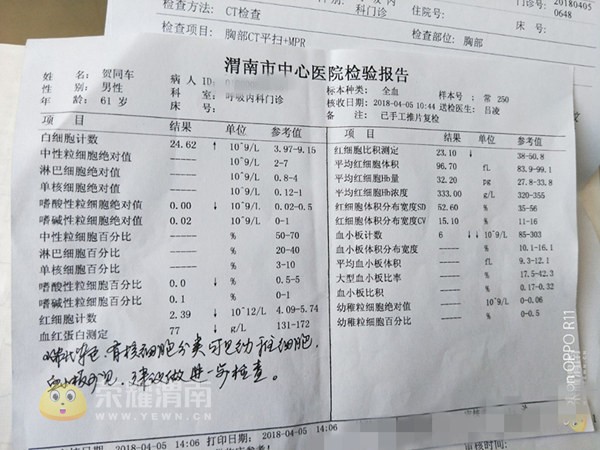 检查方法: CT检查
科门诊
住院号:
门诊号: 20180405
0648
床 号:
检查项目: 胸部CT平扫+MPR
检查部位: 胸部
渭南市中心医院检验报告
姓 名: 贺同车
病 人 ID:
标本种类: 全血
样本号: 常 250
性 别: 男性
科 室: 呼吸内科门诊
核收日期: 2018-04-05 10:44
送检医生: 吕凌
年 龄: 61 岁
床 号:
备 注: 已手工推片复检
项 目 结果 单位 参考值
项 目 结果 单位 参考值
白细胞计数 24.62 ↑ 10^9/L 3.97-9.15
红细胞比积测定 23.10 ↓ % 38-50.8
中性粒细胞绝对值 ----- 10^9/L 2-7
平均红细胞体积 96.70 fL 83.9-99.1
淋巴细胞绝对值 ----- 10^9/L 0.8-4
平均红细胞Hb量 32.20 pg 27.8-33.8
单核细胞绝对值 ----- 10^9/L 0.12-1
平均红细胞Hb浓度 333.00 g/L 320-355
嗜酸性粒细胞绝对值 0.00 ↓ 10^9/L 0.02-0.5
红细胞体积分布宽度SD 52.60 % 35-56
嗜碱性粒细胞绝对值 0.02 10^9/L 0-1
红细胞体积分布宽度CV 15.10 % 11-16
中性粒细胞百分比 ----- % 50-70
血小板计数 6 ↓↓ 10^9/L 85-303
淋巴细胞百分比 ----- % 20-40
血小板体积分布宽度 ----- % 10.1-16.1
单核细胞百分比 ----- % 3-10
平均血小板体积 ----- fL 9.3-12.1
嗜酸性粒细胞百分比 0.0 ↓ % 0.5-5
大型血小板比率 ----- % 17.5-42.3
嗜碱性粒细胞百分比 0.1 % 0-1
血小板比积 ----- % 0.17-0.32
红细胞计数 2.39 ↓ 10^12/L 4.09-5.74
幼稚粒细胞绝对值 ----- 10^9/L 0-0.06
血红蛋白测定 77 ↓ g/L 131-172
幼稚粒细胞百分比 ----- % 0-0.5
有核细胞分类可见幼稚细胞,
血小板少见, 建议做进一步检查。
荣耀渭南
WWW.YEWN.CN
2018-04-05 14:06 打印日期: 2018-04-05 14:06
审核时间:
on OPPO R11